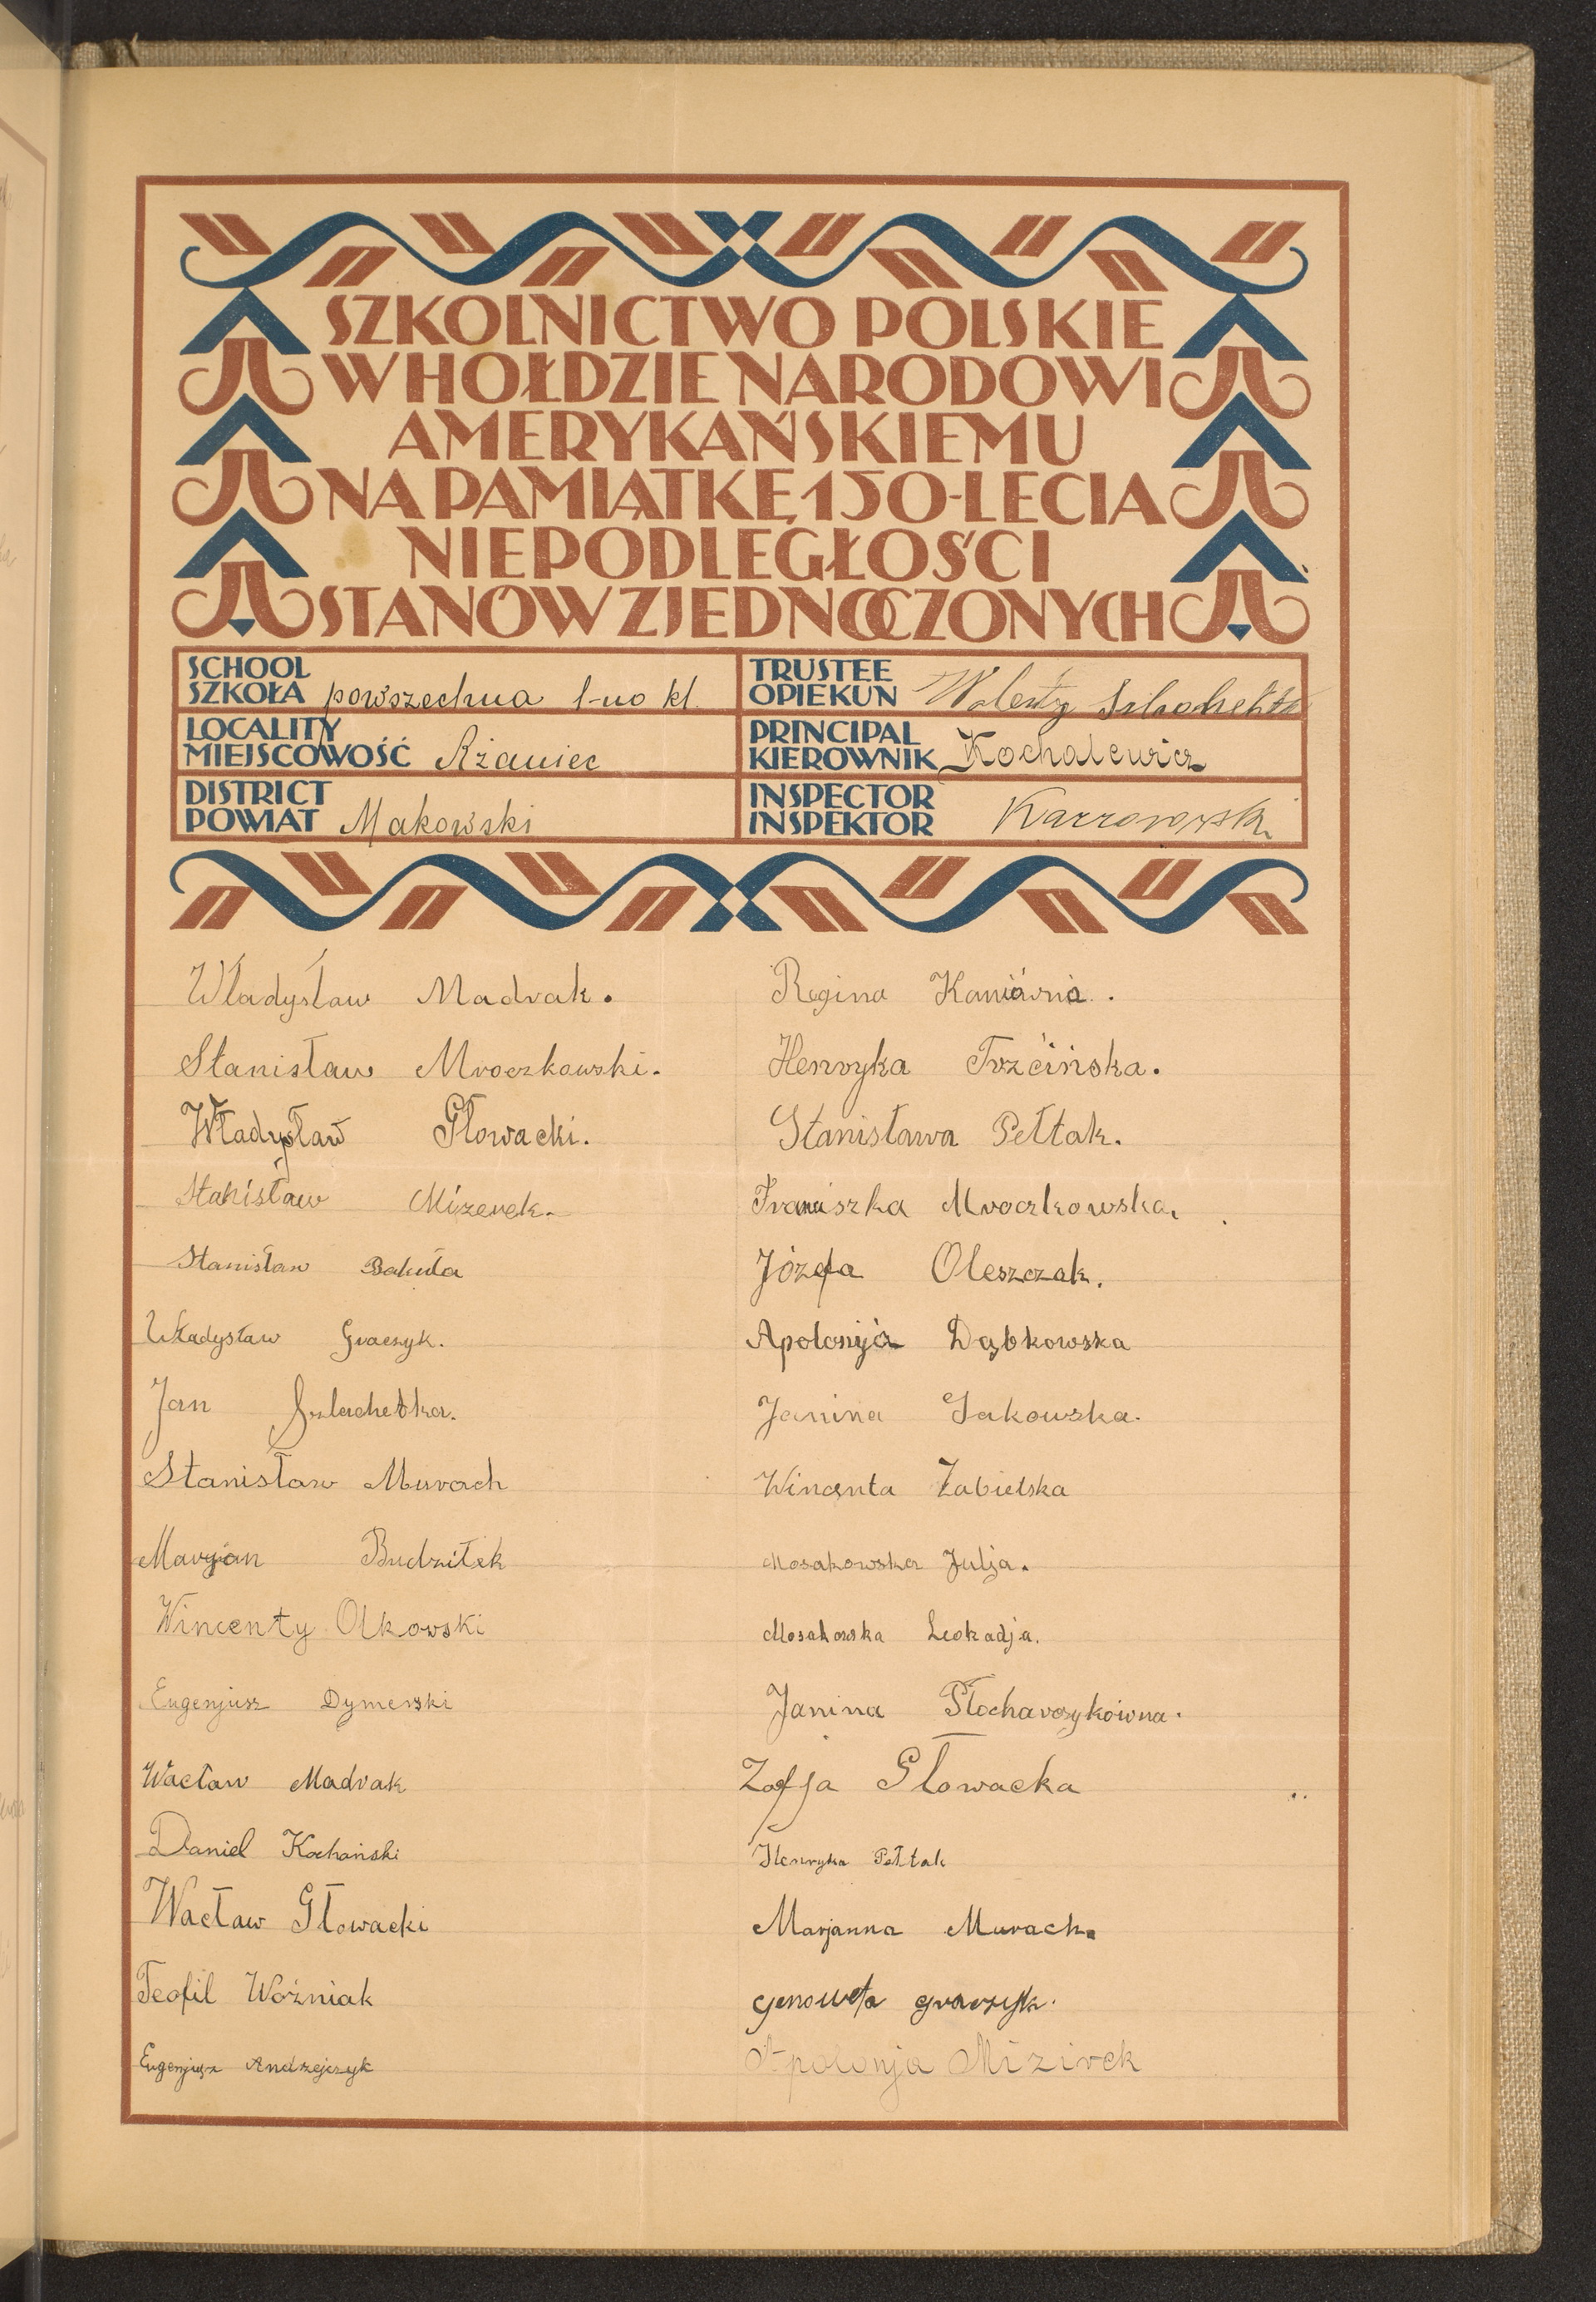 SZKOLNICTWO POLSKIE
W HOŁDZIE NARODOWI
AMERYKAŃSKIEMU
NA PAMIĄTKĘ 150-LECIA
NIEPODLEGŁOŚCI
STANÓW ZJEDNOCZONYCH
SCHOOL
SZKOŁA powszechna 1-no kl.
TRUSTEE
OPIEKUN Walenty Szlachetka
LOCALITY
MIEJSCOWOŚĆ Rżaniec
PRINCIPAL
KIEROWNIK Kochalewicz
DISTRICT
POWIAT Makowski
INSPECTOR
INSPEKTOR
Władysław Madrak.
Stanisław Mroczkowski.
Władysław Głowacki.
Stanisław Mizerek.
Stanisław Bakuła
Władysław Graczyk.
Jan Szlachetka.
Stanisław Murach
Maryjan Budziłek
Wincenty Olkowski
Eugenjusz Dymerski
Wacław Madrak
Daniel Kochański
Wacław Głowacki
Teofil Woźniak
Eugenjusz Andrzejczyk
Regina
Henryka Trzcińska.
Stanisława Pełtak.
Franciszka Mroczkowska.
Józefa Oleszczak.
Apolonija Dąbkowska
Janina Sakowska.
Wincenta Zabielska
Mosakowska Julja.
Mosakowska Leokadja.
Janina Płocharczykówna.
Zofja Głowacka
Henryka Pełtak
Marjanna Murach.
Genowefa Graczyk.
Apolonja Mizirek